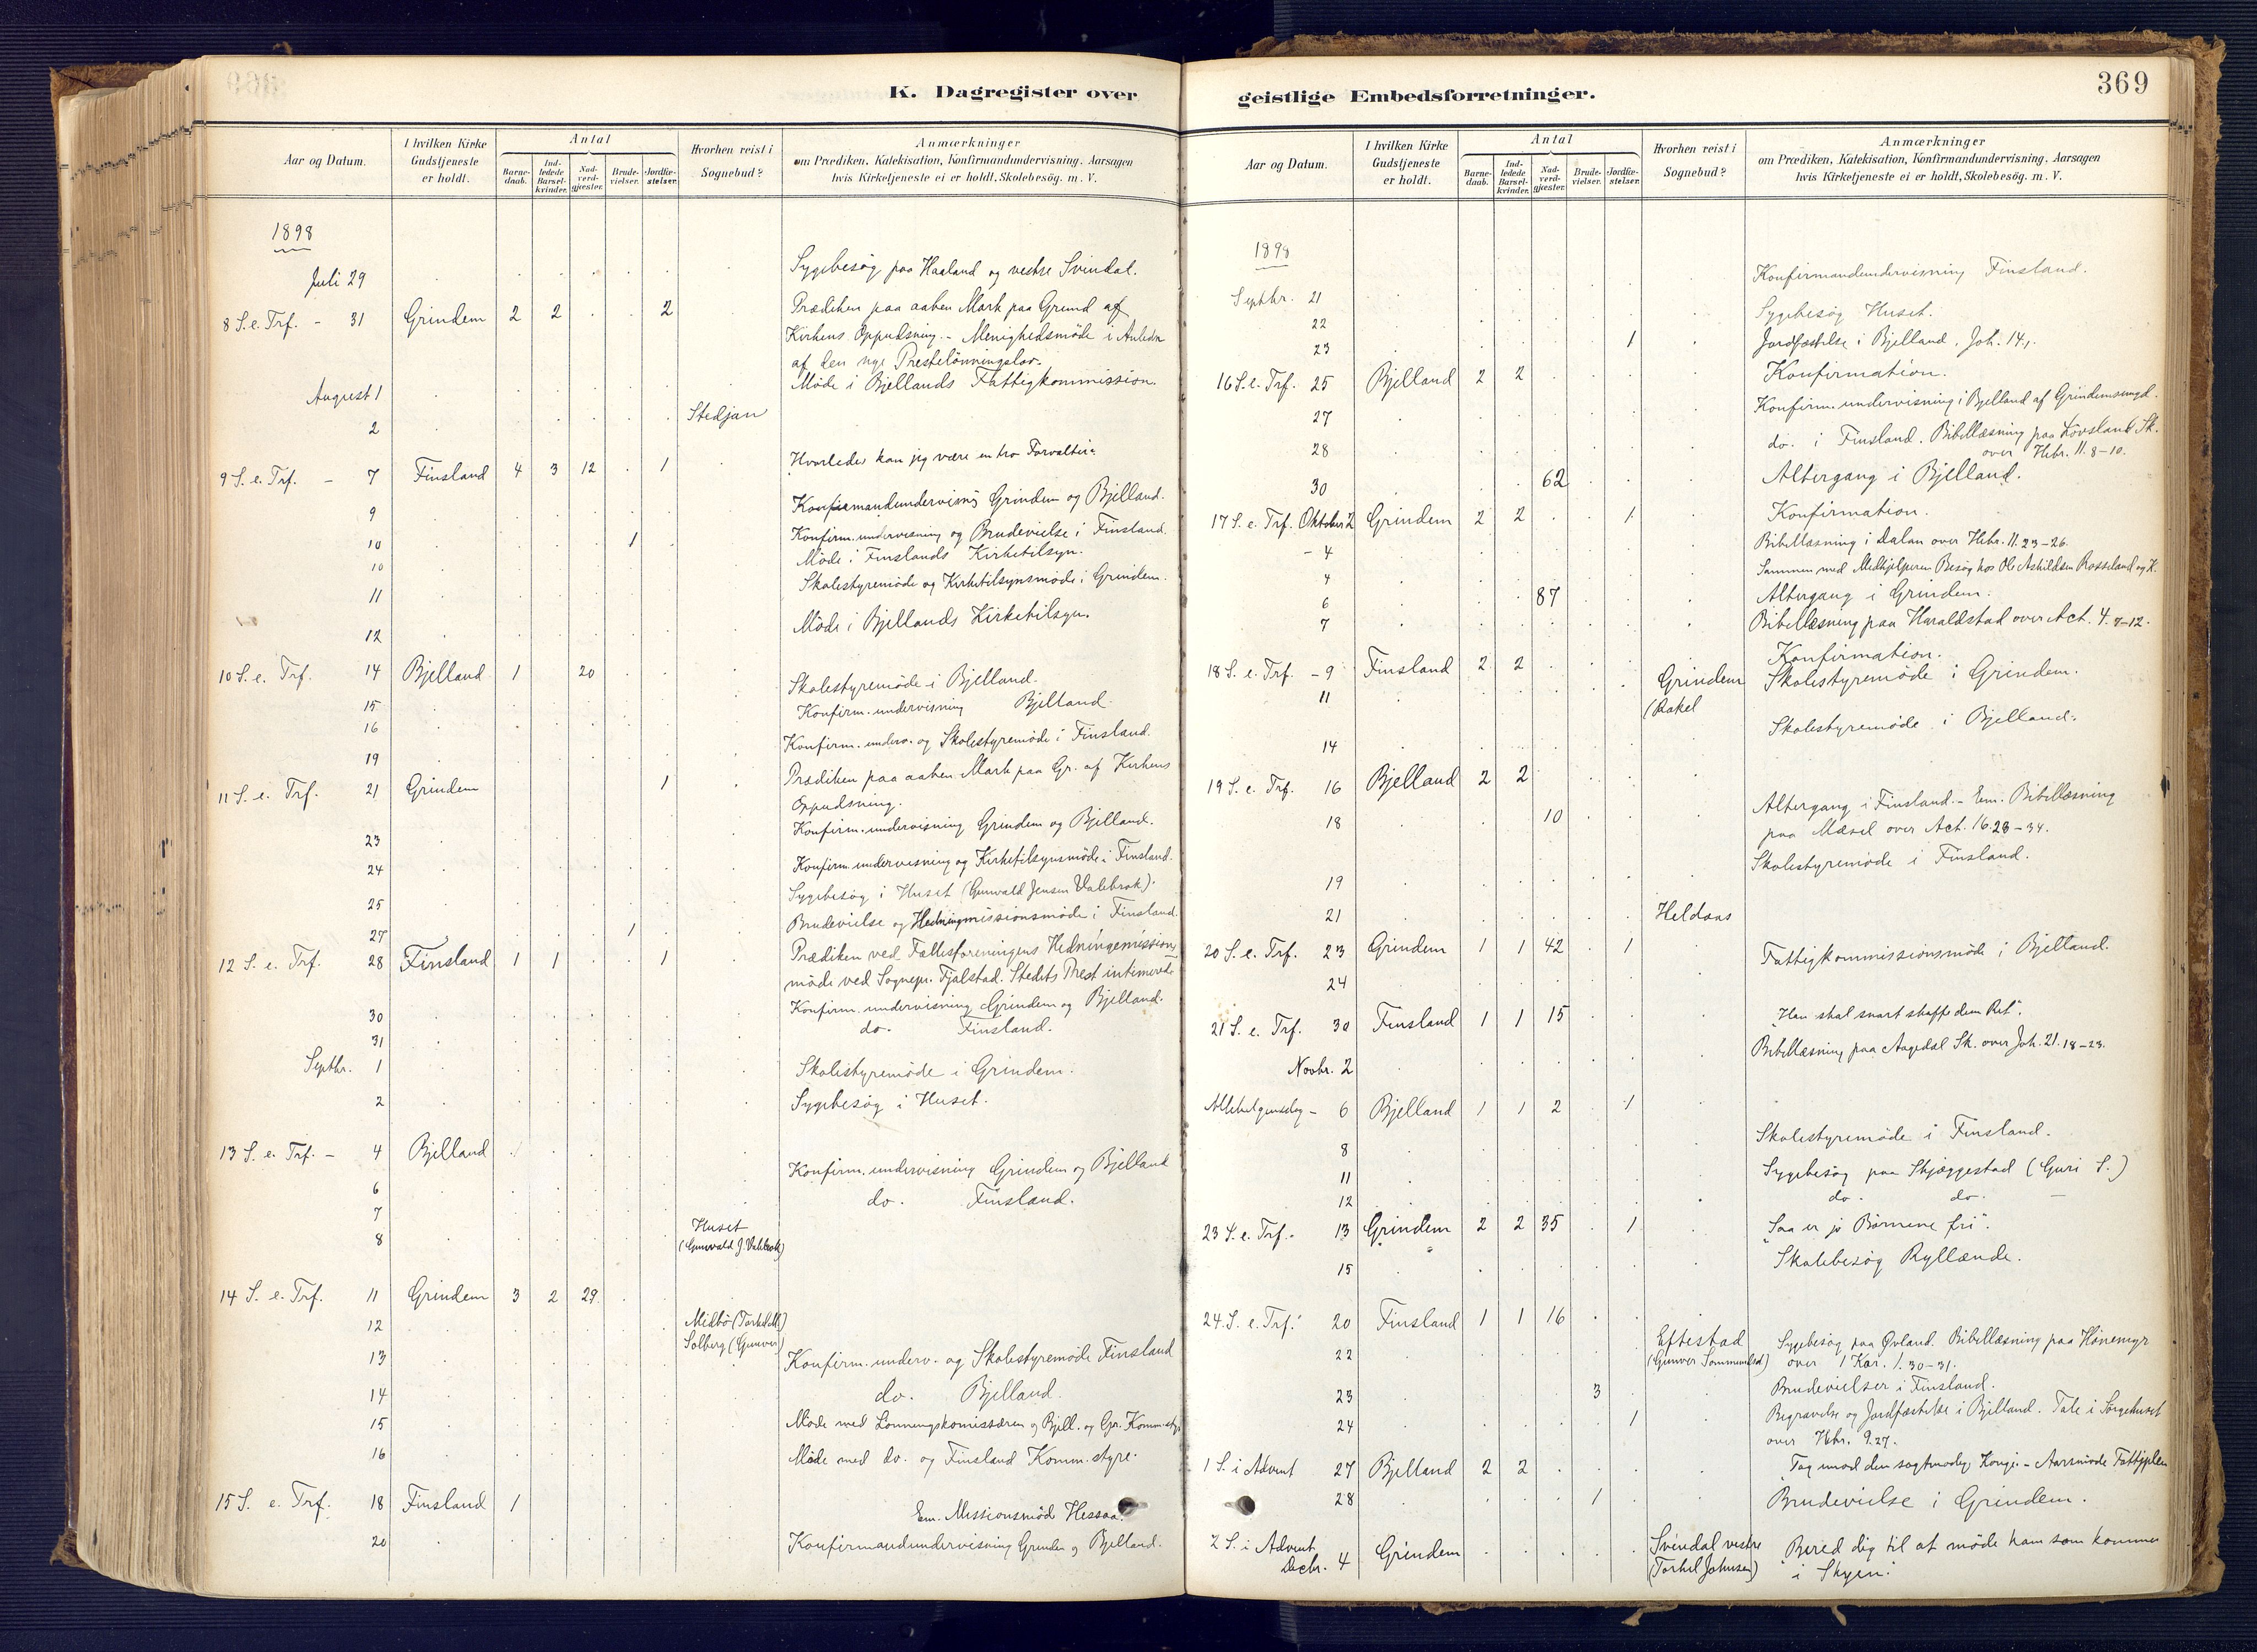 K. Dagregister over
Aar og Datum. I hvilken Kirke Gudstjeneste er holdt. Antal Barne-daab. Ind-ledede Barsel-kvinder. Nad-verd-gjester. Brude-vielser. Jordfæ-stelser. Hvorhen reist i Sognebud? Anmærkninger
om Prædiken, Katekisation, Konfirmandundervisning, Aarsagen
hvis Kirketjeneste ei er holdt, Skolebesög. m. V.
1898
Juli 29 Sygebesøg paa Haaland og vestre Svindal.
8 S. e. Trf. - 31 Grindem 2 2 . . 2 Prædiken paa aaben Mark paa Grund af
Kirkens Oppudsning. - Menighedsmöde i Anledn
af den nye Prestelönningslov.
August 1 Möde i Bjellands Fattigkommission.
2 Stedjan
9 S. e. Trf. - 7 Finsland 4 3 12 . 1 Hvorledes kan jeg være en tro Forvalter?
9 Konfirmandundervisng Grindem og Bjelland.
10 1 Konfirm. undervisning og Brudevielse i Finsland.
10 Möde i Finslands Kirketilsyn.
11 Skolestyremöde og Kirketilsynsmöde i Grindem.
12 Möde i Bjellands Kirketilsyn.
10 S. e. Trf. 14 Bjelland 1 20
15 Skolestyremöde i Bjelland.
16 Konfirm. undervisning Bjelland.
19 Konfirm. underv. og Skolestyremöde i Finsland.
11 S. e. Trf. 21 Grindem 1 Prædiken paa aaben Mark paa Gr. af Kirkens
Oppudsning.
23 Konfirm. undervisning Grindem og Bjelland.
24 Konfirm. undervisning og Kirketilsynsmöde i Finsland.
25 Sygebesøg i Huset (Gunvald Jensen Valebrok).
27 1 Brudevielse og Hedningmissionsmöde i Finsland.
12 S. e. Trf. 28 Finsland 1 1 . . 1 Prædiken ved Fællesforeningens Hedningemissions
möde ved Sognepr. Fjalstad. Stedets Prest intimerede
30 Konfirm. undervisning Grindem og Bjelland.
31 do. Finsland.
Septbr. 1 Skolestyremöde i Grindem.
2 Sygebesøg i Huset.
13 S. e. Trf. - 4 Bjelland
6 Konfirm. undervisning Grindem og Bjelland
7 do. Finsland.
8 Huset
(Gunvald J. Valebrok)
14 S. e. Trf. 11 Grindem 3 2 29
12 Midbö
Solberg (Gunver)
13 Konfirm. underv. og Skolestyremöde Finsland
14 do. Bjelland.
15 Möde med Lönningskomissæren og Bjell. og Gr. Komm.sty.
16 Möde med do. og Finsland Komm. styre.
15 S. e. Trf. 18 Finsland 1 Em. Missionsmöde Hessaa.
20 Konfirmandundervisning Grindem og Bjelland.
369
geistlige Embedsforretninger.
Aar og Datum. I hvilken Kirke Gudstjeneste er holdt. Antal Barne-daab. Ind-ledede Barsel-kvinder. Nad-verd-gjester. Brude-vielser. Jordfæ-stelser. Hvorhen reist i Sognebud? Anmærkninger
om Prædiken, Katekisation, Konfirmandundervisning, Aarsagen
hvis Kirketjeneste ei er holdt, Skolebesög. m. V.
1898
Septbr. 21 Konfirmandundervisning Finsland.
22 Sygebesøg Huset.
23 1 Jordfæstelse i Bjelland. Joh. 14,1.
16 S. e. Trf. 25 Bjelland 2 2 Konfirmation.
27 Konfirm. undervisning i Bjelland af Grindemsungd.
28 do. i Finsland. Bibellæsning paa Lövsland Sk.
over Hebr. 11. 8-10.
30 62 Altergang i Bjelland.
17 S. e. Trf. Oktober 2 Grindem 2 2 . . 1 Konfirmation.
- 4 Bibellæsning i Dalan over Hebr. 11. 23-26.
4 Sammen med Medhjelperen Besøg hos Ole Askildsen Rosseland og H.
6 87 Altergang i Grindem.
7 Bibellæsning paa Haraldstad over Act. 4. 7-12.
18 S. e. Trf. - 9 Finsland 2 2 Konfirmation.
11 Grindem
(Rakel Skolestyremöde i Grindem.
14 Skolestyremöde i Bjelland.
19 S. e. Trf. 16 Bjelland 2 2
18 10 Altergang i Finsland. - Em. Bibellæsning
paa Mæsel over Act. 16. 23-34.
19 Skolestyremöde i Finsland.
21 Heldaas
20 S. e. Trf. 23 Grindem 1 1 42 . 1
24 Fattigkommissionsmöde i Bjelland.
21 S. e. Trf. 30 Finsland 1 1 15 "Han skal snart skaffe dem Ret".
Novbr. 2 Bibellæsning paa Aagedal Sk. over Joh. 21. 18-23.
Allehelgensdag - 6 Bjelland 1 1 2 . 1
8 Skolestyremöde i Finsland.
11 Sygebesøg paa Skjæggestad (Guri S.)
12 do. do. -
23 S. e. Trf. 13 Grindem 2 2 35 . 1 "Saa er jo Børnene fri".
15 Skolebesøg Ryllænde.
24. S. e. Trf. 20 Finsland 1 1 16
22 Eftestad
(Gunver ) Sygebesøg paa Øvland. Bibellæsning paa Hönemyr
over 1 Kor. 1. 30-31.
23 3 Brudevielser i Finsland.
24 1 Begravelse og Jordfæstelse i Bjelland. Tale i Sørgehuset
over Hebr. 9.27.
1 S. i Advent 27 Bjelland 2 2 "Tag mod den sagtmodige Konge". - Aarsmöde
28 1 Brudevielse i Grindem.
2 S. i Advent
Decbr. 4 Grindem Svindal vestre
(Torkel Johnsen) "Bered dig til at møde ham som kommer
i Skyen".